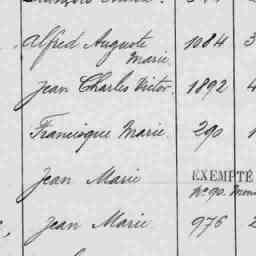 Alfred Auguste 1084 3
Marie.
Jean Charles Victor. 1892 4
Francisque Marie. 290
Jean Marie EXEMPTÉ
Jean Marie 976 2